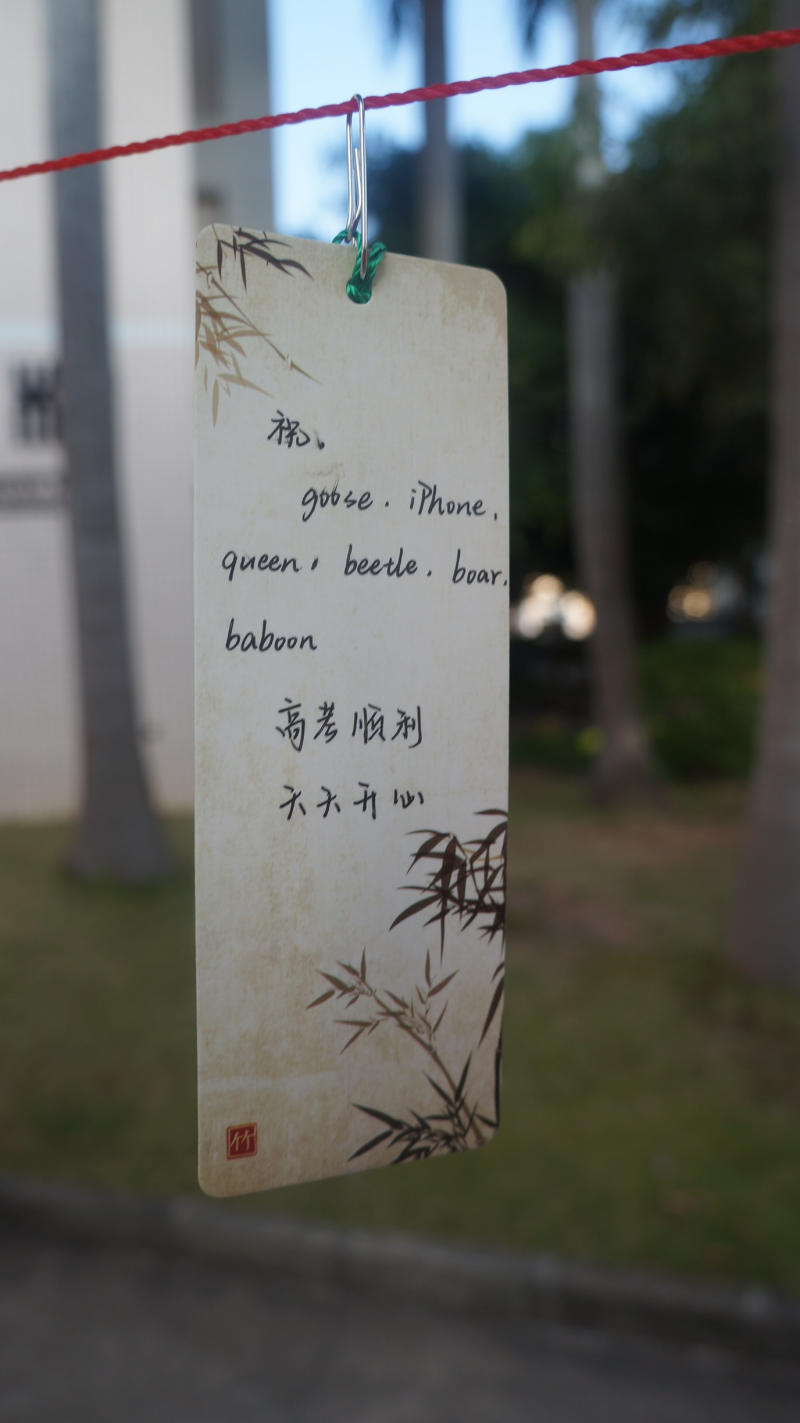 祝、
goose. iPhone.
queen, beetle. boar.
baboon
高考顺利
天天开心
竹